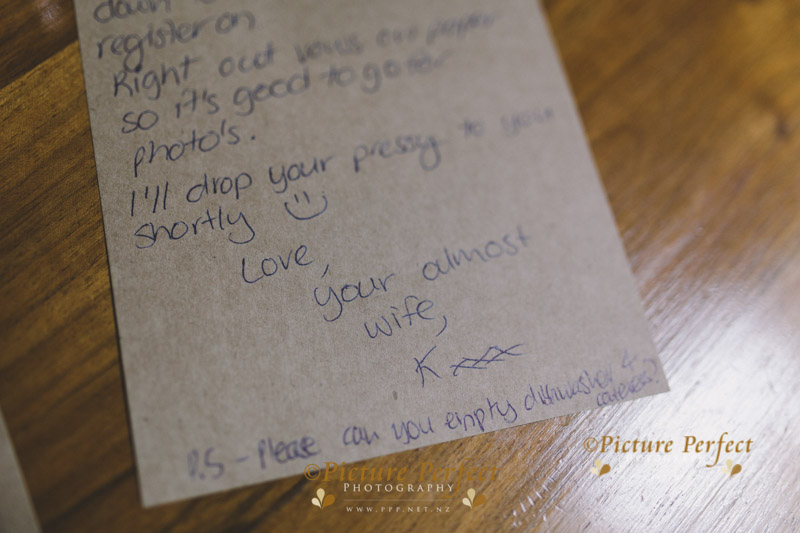 register on
Right
so it's good to go for
photo's.
I'll drop your pressy to you
shortly
Love,
your almost
wife,
K xxx
P.S - Please can you empty dishwasher &
©Picture Perfect
PHOTOGRAPHY
WWW.PPP.NET.NZ
©Picture Perfect